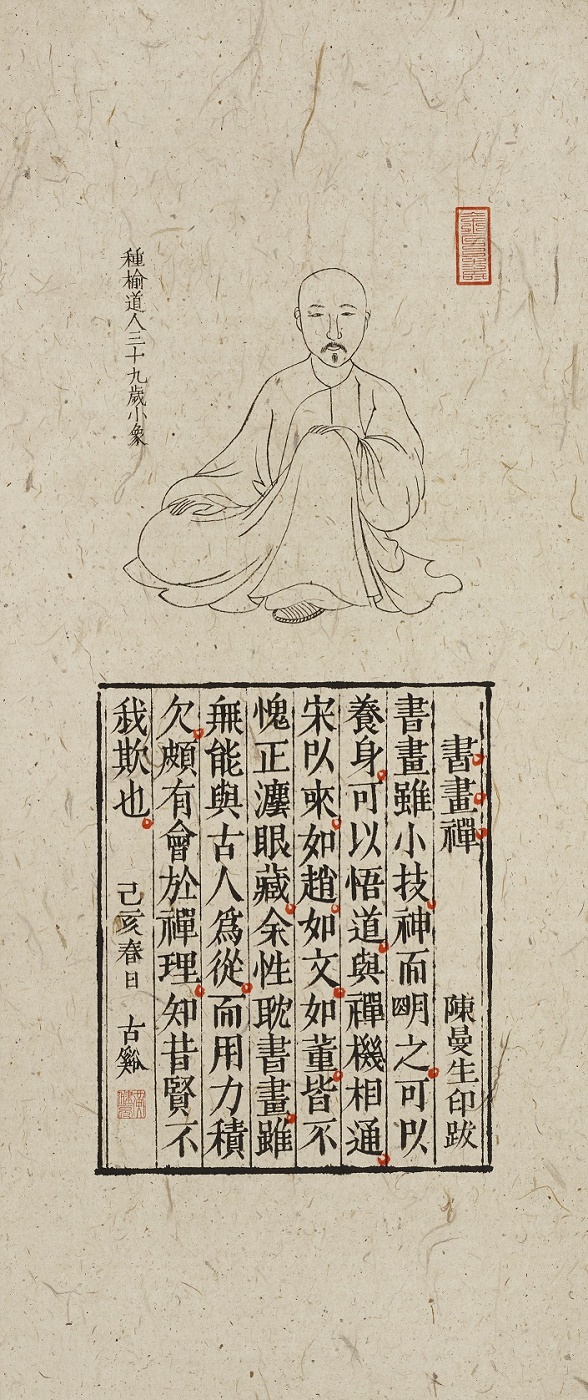 種榆道人三十九歲小象
書畫禪 陳曼生印跋
書畫雖小技神而明之可以
養身可以悟道與禪機相通
宋以來如趙如文如董皆不
愧正灋眼藏余性耽書畫雖
無能與古人爲從而用力積
久頗有會於禪理知昔賢不
我欺也 己亥春日 古谿